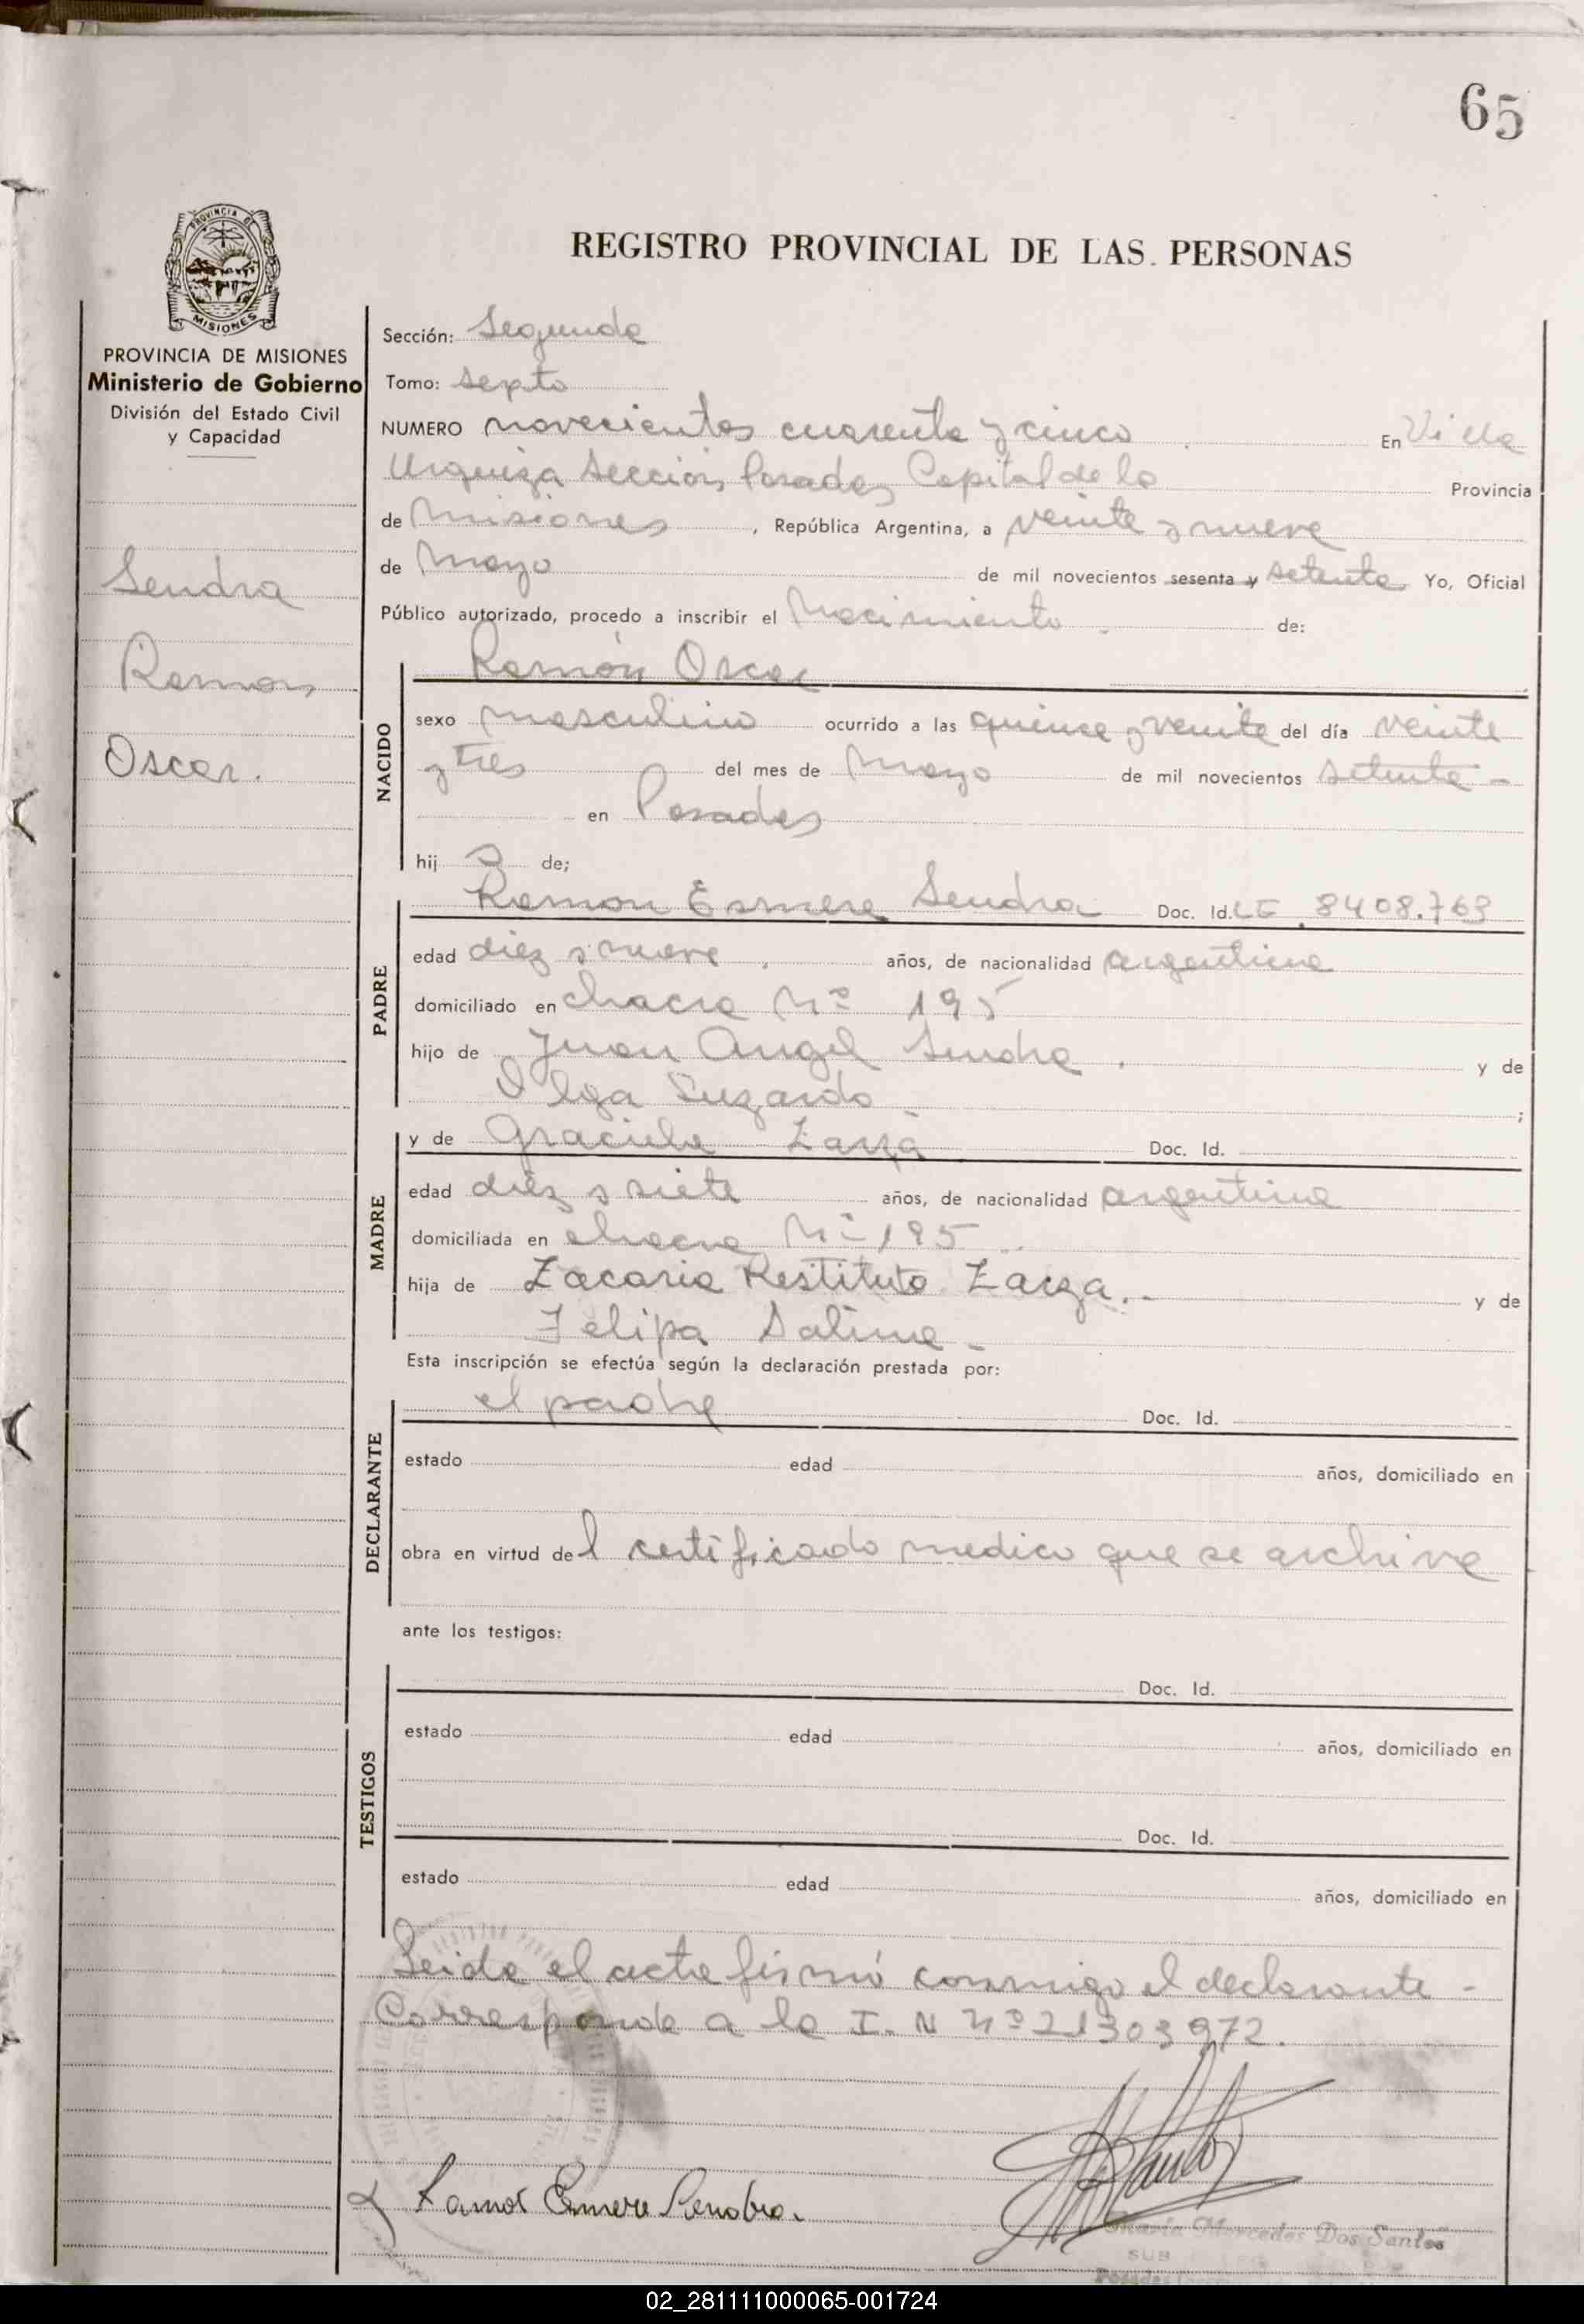 65
PROVINCIA DE MISIONES
REGISTRO PROVINCIAL DE LAS PERSONAS
PROVINCIA DE MISIONES
Ministerio de Gobierno
División del Estado Civil
y Capacidad
Sendra
Ramon
Oscar.
Sección: Segunda
Tomo: sexto
NUMERO novecientos cuarenta y cinco En Villa
Urquiza Sección Posadas Capital de la Provincia
de Misiones, República Argentina, a veinte y nueve
de Mayo de mil novecientos sesenta y setenta Yo, Oficial
Público autorizado, procedo a inscribir el Nacimiento de:
NACIDO
Ramón Oscar
sexo masculino ocurrido a las quince y veinte del día veinte
y tres del mes de Mayo de mil novecientos setenta -
en Posadas
hij o de;
PADRE
Ramon Esmere Sendra Doc. Id. LE 8408.769
edad diez y nueve años, de nacionalidad argentina
domiciliado en chacra Nº 195
hijo de Juan Angel Sendra. y de
Olga Suzardo ;
MADRE
y de Graciela Zarza Doc. Id.
edad diez y siete años, de nacionalidad argentina
domiciliada en chacra Nº 195
hija de Zacaria Restituto Zarza. y de
Felipa Salina -
Esta inscripción se efectúa según la declaración prestada por:
DECLARANTE
el padre Doc. Id.
estado edad años, domiciliado en
obra en virtud del certificado medico que se archiva
ante los testigos:
TESTIGOS
Doc. Id.
estado edad años, domiciliado en
Doc. Id.
estado edad años, domiciliado en
Leida el acta firmó conmigo el declarante -
Corresponde a la I. N Nº 21303972.
Ramon Esmere Sendra.
Mercedes Dos Santos
SUB
Posadas
02_281111000065-001724